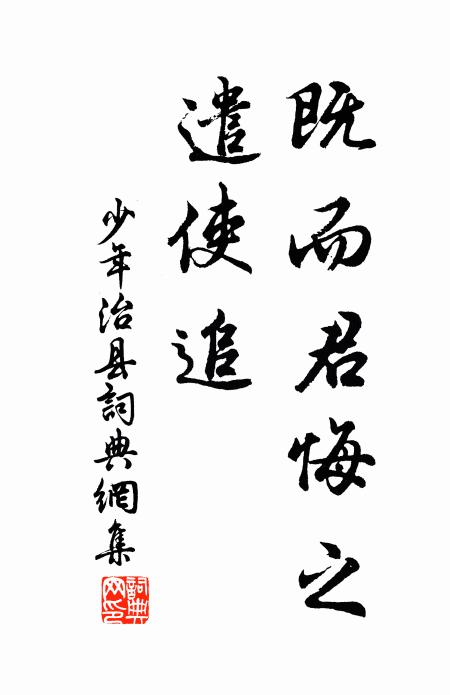 既而君悔之
遣使追
少年治县詞典網集
詞典网印